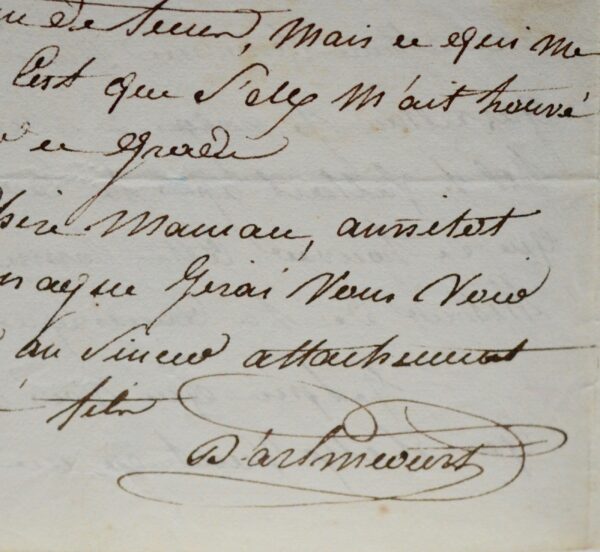 de , mais ce qui me
c'est que m'ait trouvé
ce grade
chere Maman, aussitot
que j'irai vous voir
au sincere attachement
fils
D'arlincourt